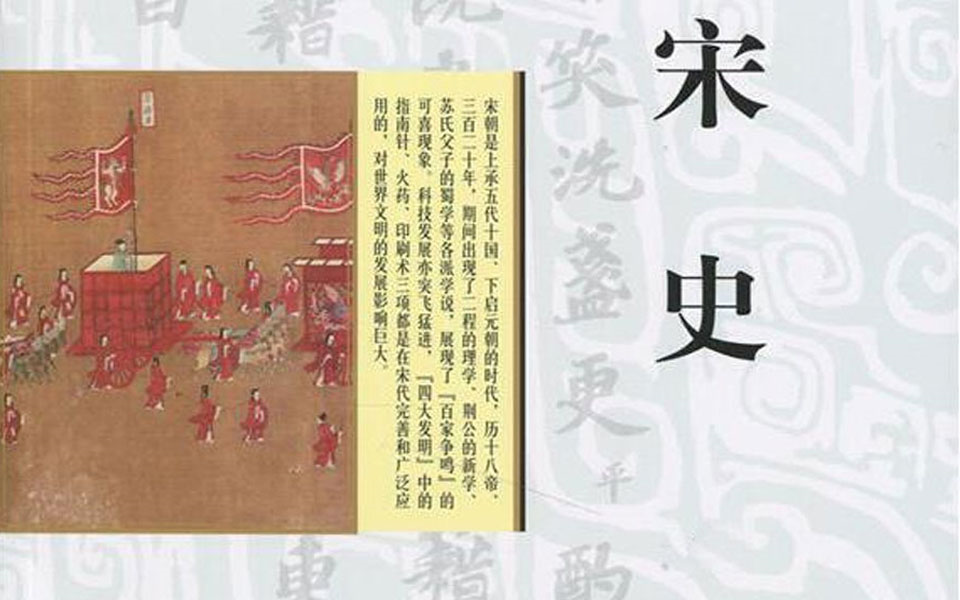 宋史
笑洗盞更酌
平
宋朝是上承五代十国、下启元朝的时代，历十八帝，
三百二十年，期间出现了二程的理学、荆公的新学、
苏氏父子的蜀学等各派学说，展现了『百家争鸣』的
可喜现象。科技发展亦突飞猛进，『四大发明』中的
指南针、火药、印刷术三项都是在宋代完善和广泛应
用的，对世界文明的发展影响巨大。